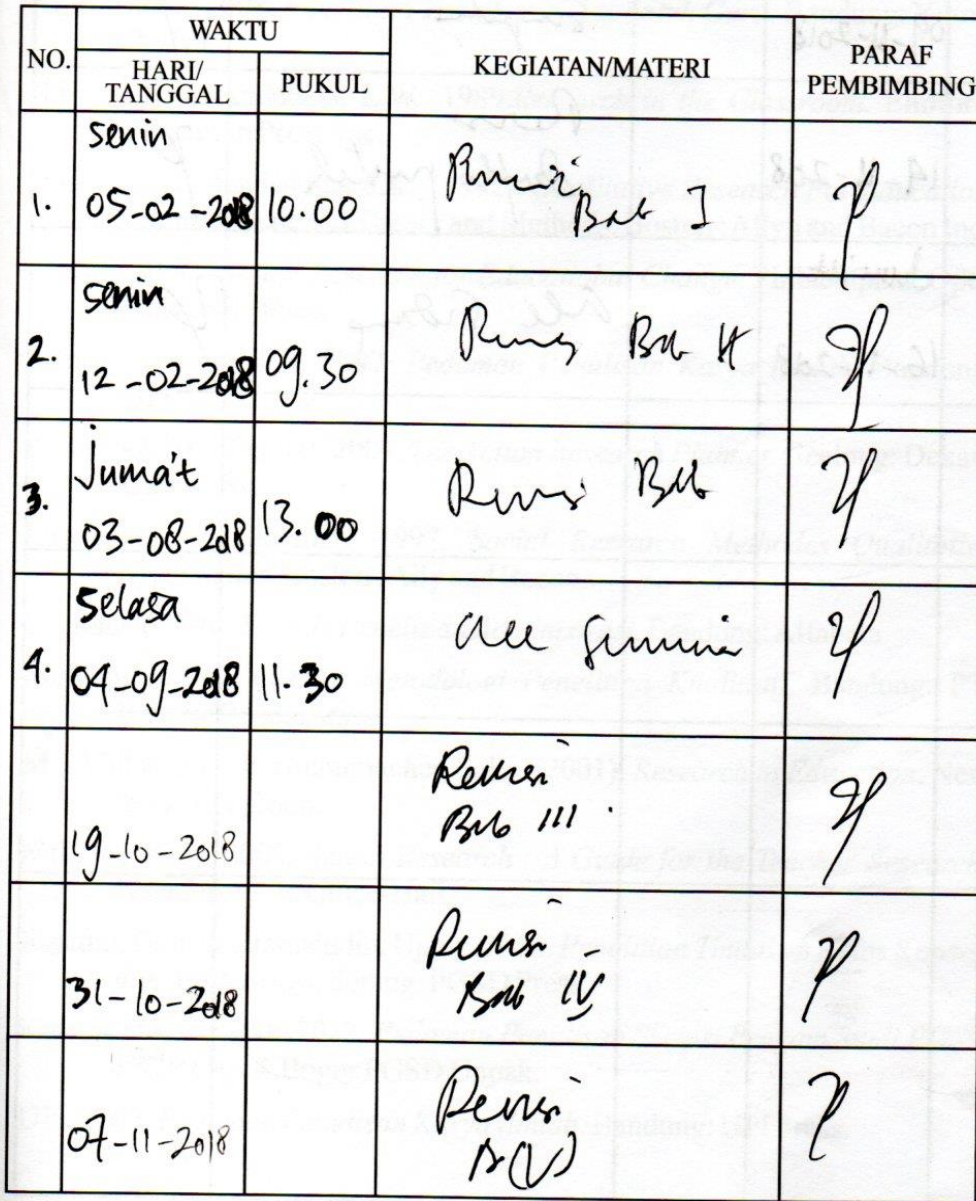 NO.
WAKTU
HARI/
TANGGAL
PUKUL
KEGIATAN/MATERI
PARAF
PEMBIMBING
1.
senin
05-02-2018
10.00
Revisi
Bab I
2.
senin
12-02-2018
09.30
Revisi Bab II
3.
Juma't
03-08-2018
13.00
Revisi Bab
4.
Selasa
04-09-2018
11.30
acc
19-10-2018
Revisi
Bab III
31-10-2018
Revisi
Bab IV
07-11-2018
Revisi